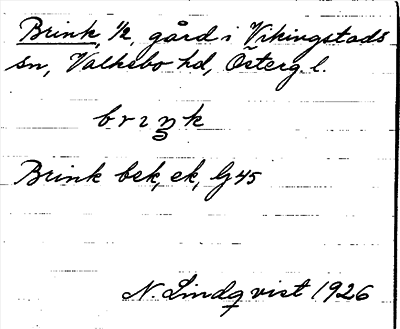 Brink, 1/2, gård i Vikingstads
sn, Valkebo hd, Österg. l.
brıŋk
Brink bek, ek, G45
N. Lindqvist 1926